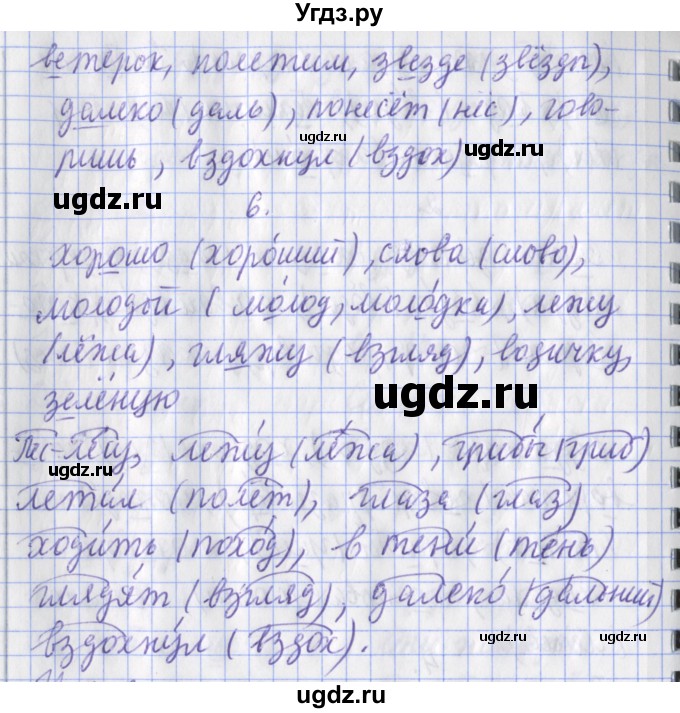 Угдз.ру
ветерок, полетим, звезде (звёзды),
далеко (даль), понесёт (нёс), гово-
ugdz.ru
ришь, вздохнул (вздох) ugdz.ru
ugdz.ru
6.
хорошо (хоро́ший), слова (слово),
молодой (мо́лод, моло́дка), лежу
(лёжа), гляжу (взгляд), водичку,
ugdz.ru
зелёную
Лес-лесу, лежу́ (лёжа), грибы́ (гриб)
ugdz.ru
лета́л (полёт), глаза (глаз)
ugdz.ru
ходи́ть (похо́д), в тени́ (те́нь)
глядя́т (взгляд), далеко́ (да́льний)
вздохну́л (вздо́х).
ugdz.ru ugdz.ru
ugdz.ru